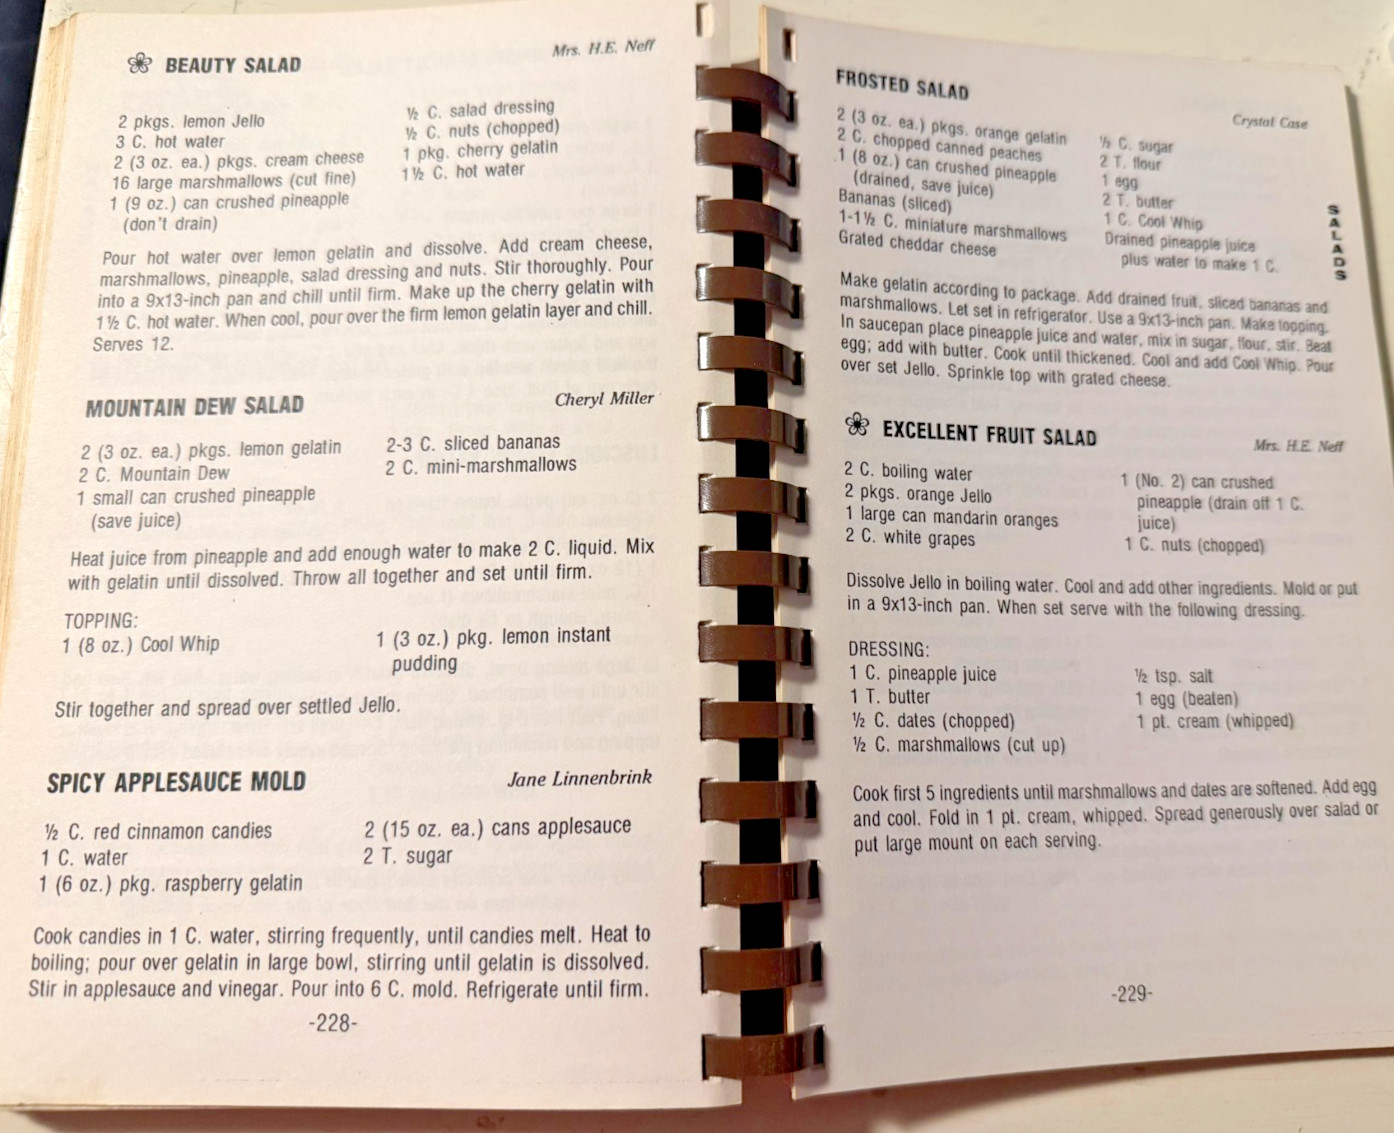 BEAUTY SALAD
Mrs. H.E. Neff
2 pkgs. lemon Jello
3 C. hot water
2 (3 oz. ea.) pkgs. cream cheese
16 large marshmallows (cut fine)
1 (9 oz.) can crushed pineapple
(don't drain)
½ C. salad dressing
½ C. nuts (chopped)
1 pkg. cherry gelatin
1½ C. hot water
Pour hot water over lemon gelatin and dissolve. Add cream cheese,
marshmallows, pineapple, salad dressing and nuts. Stir thoroughly. Pour
into a 9x13-inch pan and chill until firm. Make up the cherry gelatin with
1½ C. hot water. When cool, pour over the firm lemon gelatin layer and chill.
Serves 12.
MOUNTAIN DEW SALAD
Cheryl Miller
2 (3 oz. ea.) pkgs. lemon gelatin
2 C. Mountain Dew
1 small can crushed pineapple
(save juice)
2-3 C. sliced bananas
2 C. mini-marshmallows
Heat juice from pineapple and add enough water to make 2 C. liquid. Mix
with gelatin until dissolved. Throw all together and set until firm.
TOPPING:
1 (8 oz.) Cool Whip
1 (3 oz.) pkg. lemon instant
pudding
Stir together and spread over settled Jello.
SPICY APPLESAUCE MOLD
Jane Linnenbrink
½ C. red cinnamon candies
1 C. water
1 (6 oz.) pkg. raspberry gelatin
2 (15 oz. ea.) cans applesauce
2 T. sugar
Cook candies in 1 C. water, stirring frequently, until candies melt. Heat to
boiling; pour over gelatin in large bowl, stirring until gelatin is dissolved.
Stir in applesauce and vinegar. Pour into 6 C. mold. Refrigerate until firm.
-228-
FROSTED SALAD
Crystal Case
2 (3 oz. ea.) pkgs. orange gelatin
2 C. chopped canned peaches
1 (8 oz.) can crushed pineapple
(drained, save juice)
Bananas (sliced)
1-1½ C. miniature marshmallows
Grated cheddar cheese
½ C. sugar
2 T. flour
1 egg
2 T. butter
1 C. Cool Whip
Drained pineapple juice
plus water to make 1 C.
Make gelatin according to package. Add drained fruit, sliced bananas and
marshmallows. Let set in refrigerator. Use a 9x13-inch pan. Make topping.
In saucepan place pineapple juice and water, mix in sugar, flour, stir. Beat
egg; add with butter. Cook until thickened. Cool and add Cool Whip. Pour
over set Jello. Sprinkle top with grated cheese.
SALADS
EXCELLENT FRUIT SALAD
Mrs. H.E. Neff
2 C. boiling water
2 pkgs. orange Jello
1 large can mandarin oranges
2 C. white grapes
1 (No. 2) can crushed
pineapple (drain off 1 C.
juice)
1 C. nuts (chopped)
Dissolve Jello in boiling water. Cool and add other ingredients. Mold or put
in a 9x13-inch pan. When set serve with the following dressing.
DRESSING:
1 C. pineapple juice
1 T. butter
½ C. dates (chopped)
½ C. marshmallows (cut up)
½ tsp. salt
1 egg (beaten)
1 pt. cream (whipped)
Cook first 5 ingredients until marshmallows and dates are softened. Add egg
and cool. Fold in 1 pt. cream, whipped. Spread generously over salad or
put large mount on each serving.
-229-